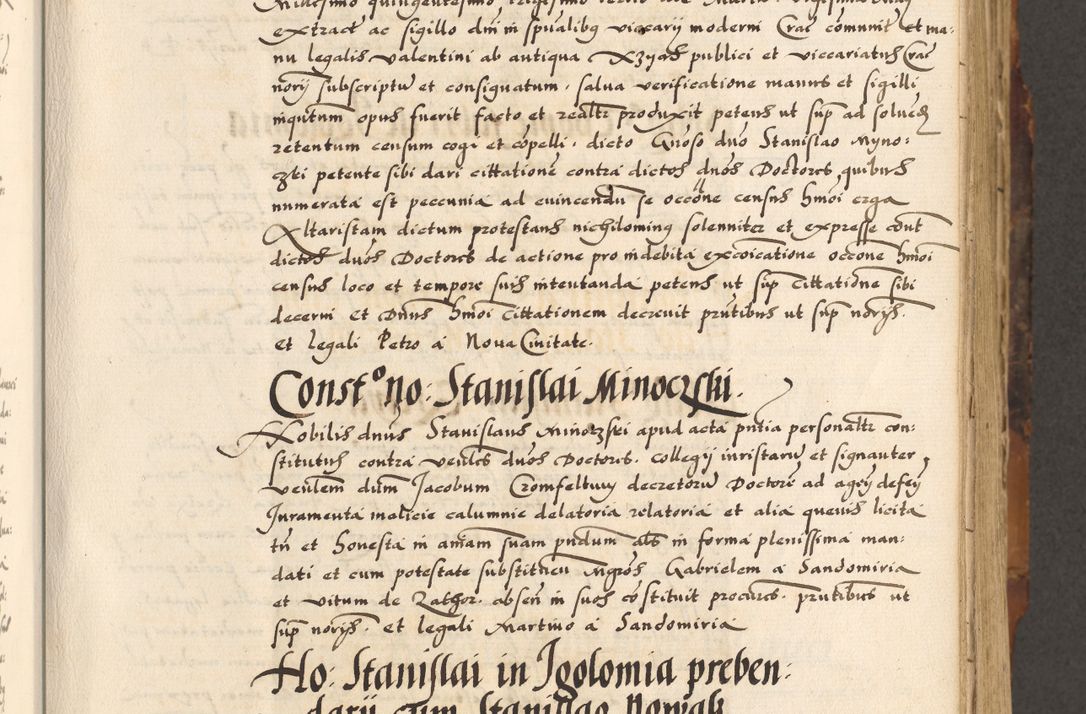 Millesimo quingentesimo trigesimo tertio die Martii vigesima
extract ac sigillo dni in spualibq vicarij moderni Crac comunit et ma:
nu legalis valentini ab antiqua Rzyas publici et viccariatus Crac
norij subscriptu et consignatum, salua verificatione manus et sigilli
inqutum opus fuerit facto et realr produxit petens ut sup ad soluen
retentum censum cogi et copelli. dicto Gnoso dno Stanislao Myno:
czki petente sibi dari cittatione contra dictos dnos Doctores, quibus
numerata est peccunia ad euincendu se occone census hmoi erga
Altaristam dictum protestans nichilominq solenniter et expresse cont
dictos dnos Doctores de actione pro indebita excoicatione occone hmoi
census loco et tempore suis intentanda petens ut sup cittatione sibi
decerni Et Dnus hmoi cittationem decreuit pntibus ut sup norijs.
et legali Petro a Noua Ciuitate.
Const.o no: Stanislai Minoczski.
Nobilis dnus Stanislaus Minoczski apud acta pntia personalr con:
stitutus contra venles dnos Doctores. Collegij iuristaru et signanter
venlem dum Jacobum Cromfeltuy decretoru Doctore ad agen defen
Juramenta malicie calumnie delatoria relatoria et alia queuis licita
tn et honesta in aniam suam pndum als in forma plenissima man:
dati et cum potestate substituen Mgros Gabrielem a Sandomiria
et vitum de Zathor. absen in suos costituit procures. pntibus ut
sup norijs. et legali Martino a Sandomiria
Ho: Stanislai in Igolomia preben:
darij cum Stanislao Nowak